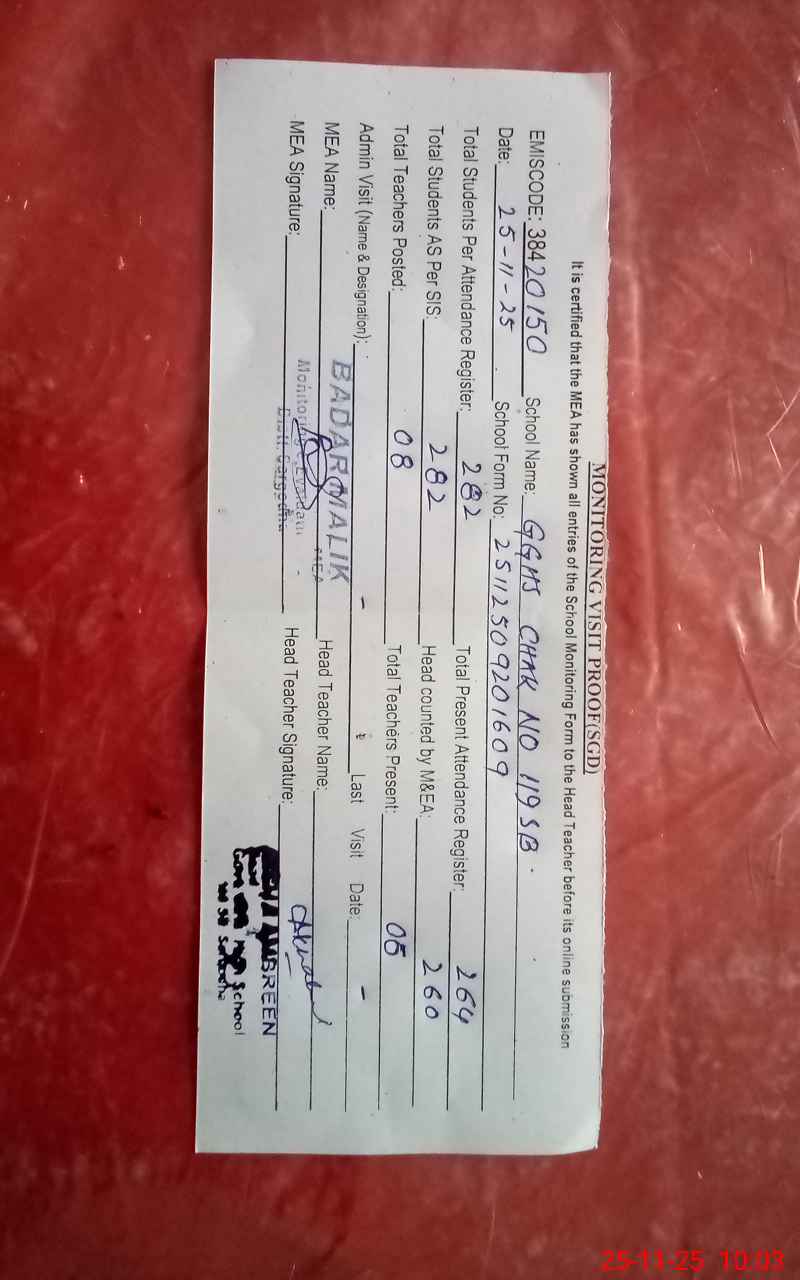 MONITORING VISIT PROOF(SGD)
It is certified that the MEA has shown all entries of the School Monitoring Form to the Head Teacher before its online submission
EMISCODE: 38420150 School Name: GGHS CHAK NO 119 SB.
Date: 25-11-25 School Form No: 251125092 01609
Total Students Per Attendance Register: 282 Total Present Attendance Register: 264
Total Students AS Per SIS: 282 Head counted by M&EA: 260
Total Teachers Posted: 08 Total Teachers Present: 05
Admin Visit (Name & Designation): - Last Visit Date: -
MEA Name: BADAR MALIK MEA Head Teacher Name:
MEA Signature: Monitoring Head Teacher Signature:
AMBREEN
School
25-11-25 10:03